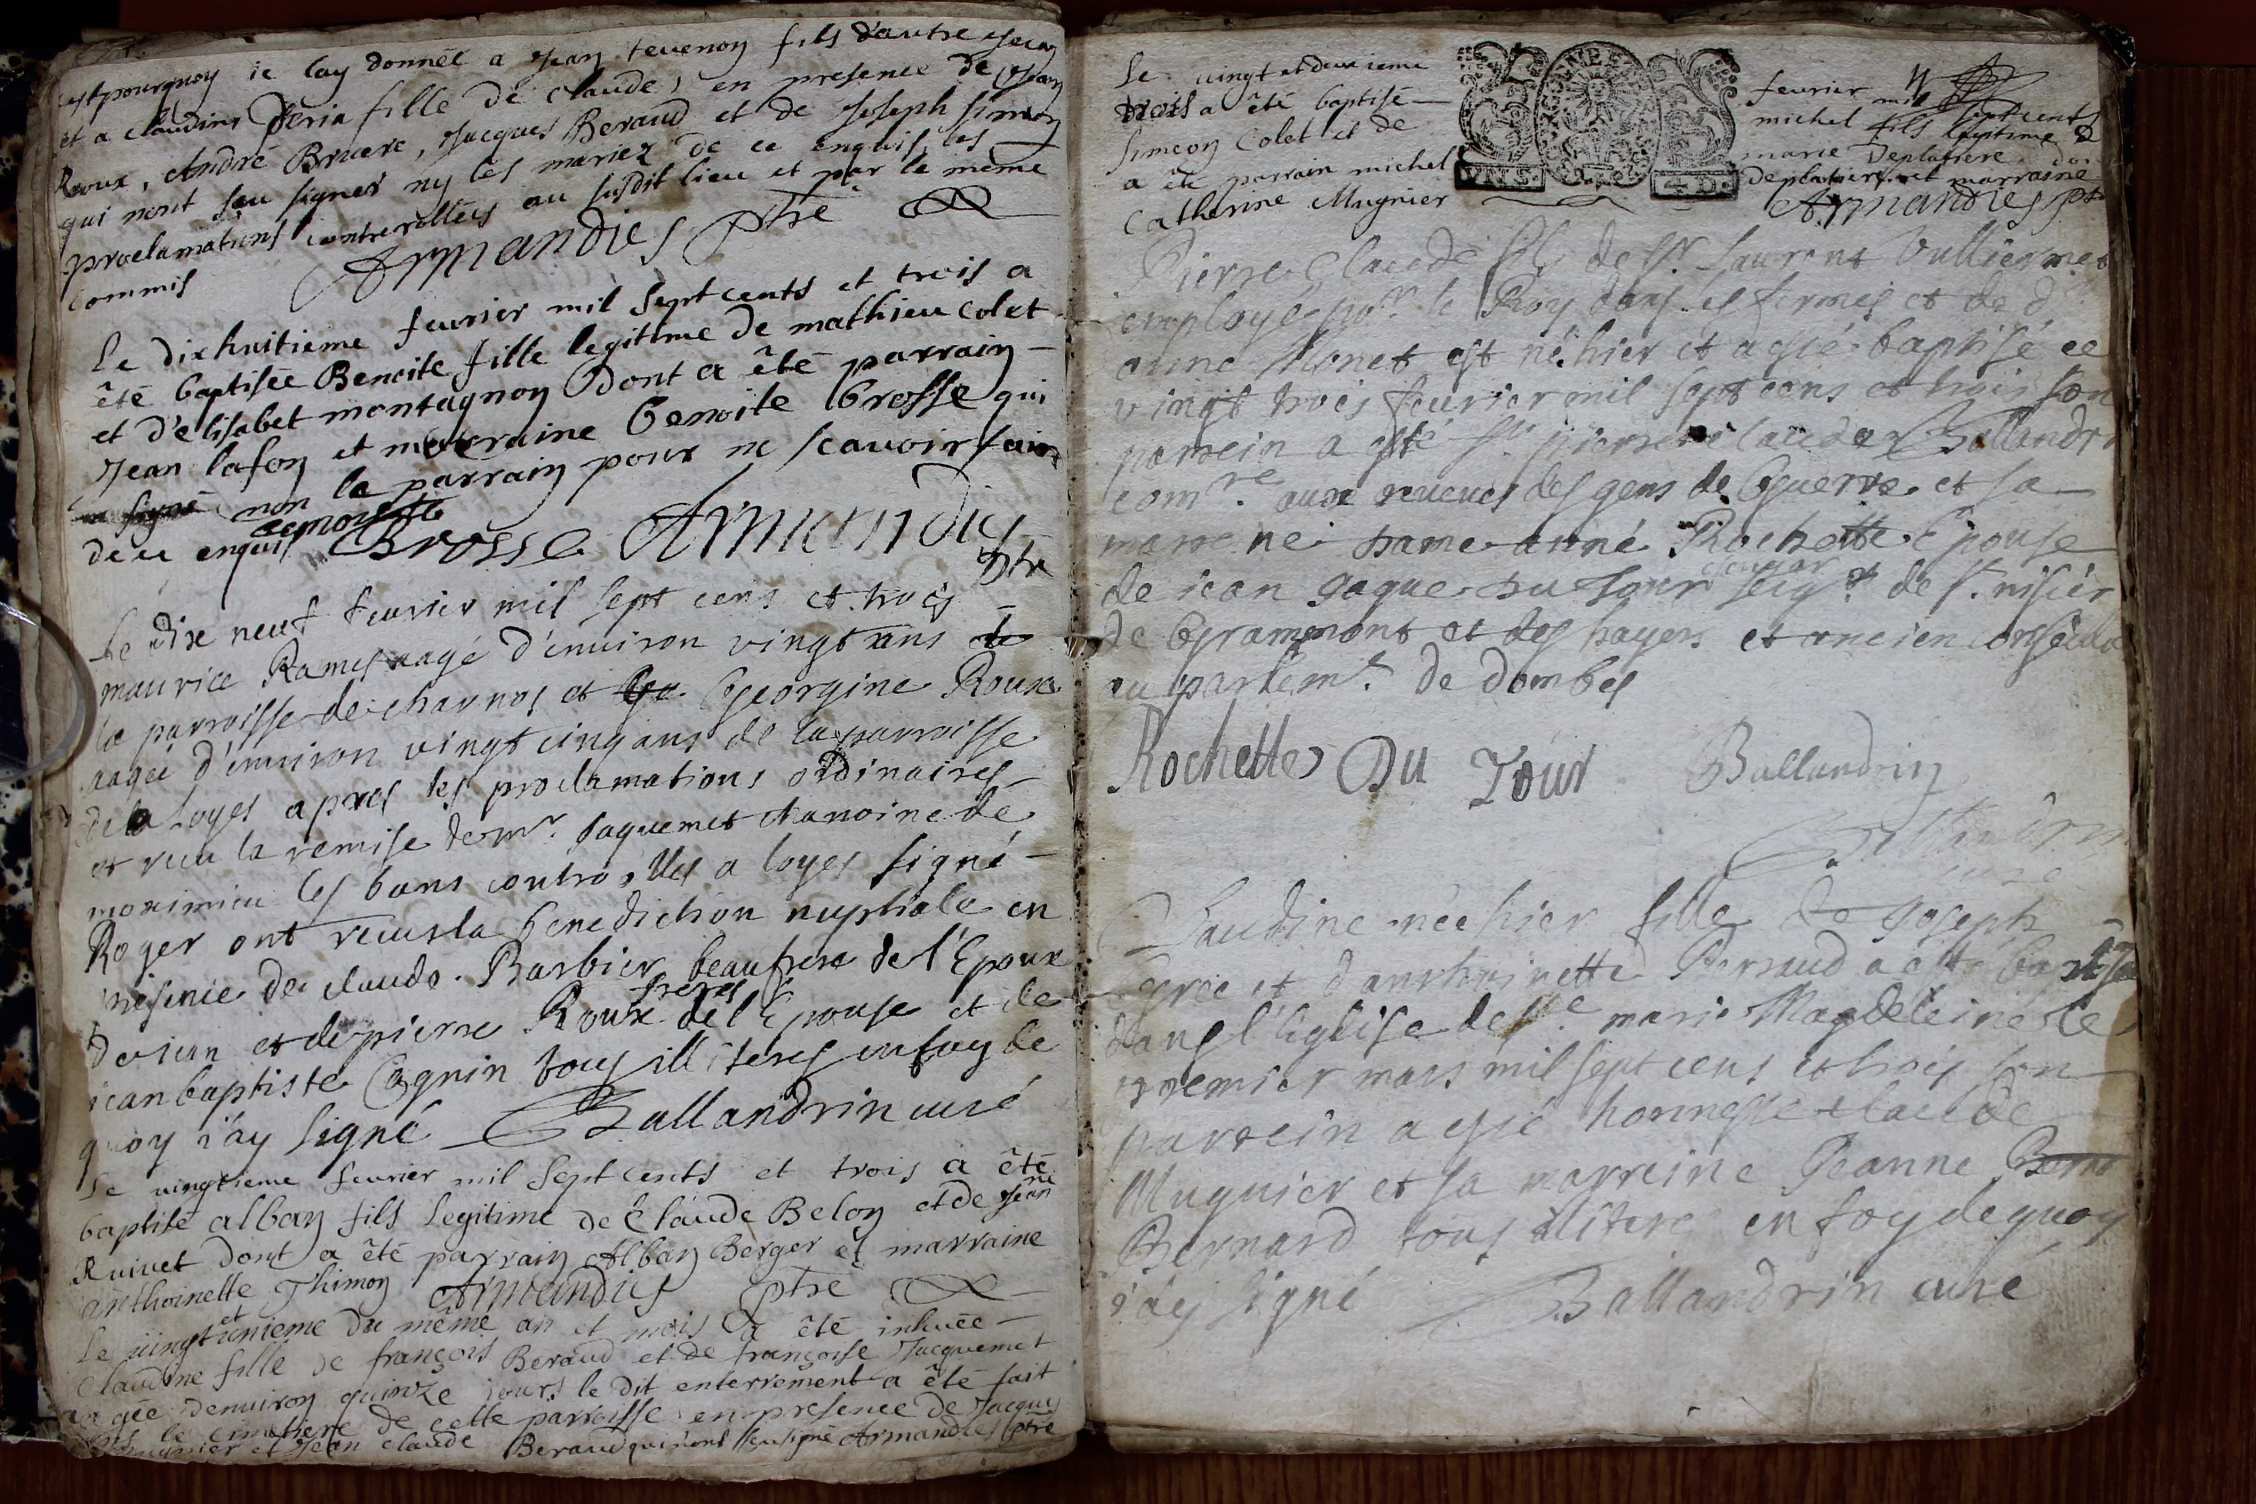 cest pourquoy ie lay donnée a Jean tevenon fils d'autre Jean
et a claudine Peria fille de claude, en presence de Jean
Roux, André Bruere, Jacques Beraud et de Joseph simon
qui n'ont sçu signer ny les mariez de ce enquis, les
proclamations controrollées au susdit lieu et par le même
commis Armandies ptre
Le dixhuitieme feurier mil sept cents et trois a
êté baptisée Benoite fille legitime de mathieu colet
et d'elisabet montagnon dont a êté parrain
Jean lafon et marraine benoite brosse qui
a signé non le parrain pour ne scauoir faire
de ce enquis Brosse Armandies
ptre
Le dix neuf feurier mil sept cens et trois
maurice Rames aagé d'enuiron vingt ans de
la parroisse de charnos et Georgine Roux
aagée d'enuiron vingt cinq ans de la parroisse
de Loyes apres les proclamations ordinaires
et receu la remise de mr. Jaquemet chanoine de
moximieu les bans controllés a loyes signé
Roger ont receus la benediction nuptiale en
presence de claude Barbier beaufrere de l'Epoux
freres
de iean et de pierre Roux de l'Epouse et de
iean baptiste Cognin tous illiteres en foy de
quoy i'ay signé Ballandrin curé
Le vingtieme feurier mil sept cents et trois a êté
baptisé alban fils legitime de Claude Belon et de Jeanne
Ruivet dont a êté parrain Alban Berger et marraine
anthoinette Thimon Armandies ptre
Le vingt et unieme du même an et mois a êté inhuée
Claudine fille de françois Beraud et de françoise Jacquemet
aagée denuiron quinze jours le dit enterrement a êté fait
dans le cimetiere de cette parroisse en presence de Jacques
Mugnier et Jean claude Beraud qui n'ont sçu signé Armandies ptre
Le vingt et deuxieme feurier mil sept cents
trois a êté baptisé michel fils legitime de
simeon Colet et de marie Deplatiere, dont
a êté parrain michel deplatiere et marraine
Catherine Mugnier Armandies ptre
VN S. 4 D.
Pierre Claude fils de sr. Laurent Vulliermet
employé pr. le Roy dans les fermes et de d.
anne Monet est né hier et a esté baptisé ce
vingt trois feurier mil sept cens et trois son
parrein a esté sr. pierre claude Ballandrin
comre. aux reueues des gens de Guerre et sa
marrene dame anne Rochette Epouse
de iean Jaque Du Jour seigr. de st. nisier
de Grammont et des hayes et ancien conseiller
au parlemt. de Dombes
Rochette Du Jour Ballandrin
Ballandrin
curé
Claudine née hier fille de Joseph
Gree et d'anthoinette Berraud a esté baptisée
dans l'eglise de ste. marie Magdeleine le
premier mars mil sept cens et trois son
parrein a esté honneste claude
Mugnier et sa marreine Jeanne
Bernard tous illiteres en foy de quoy
i'ay signé Ballandrin curé